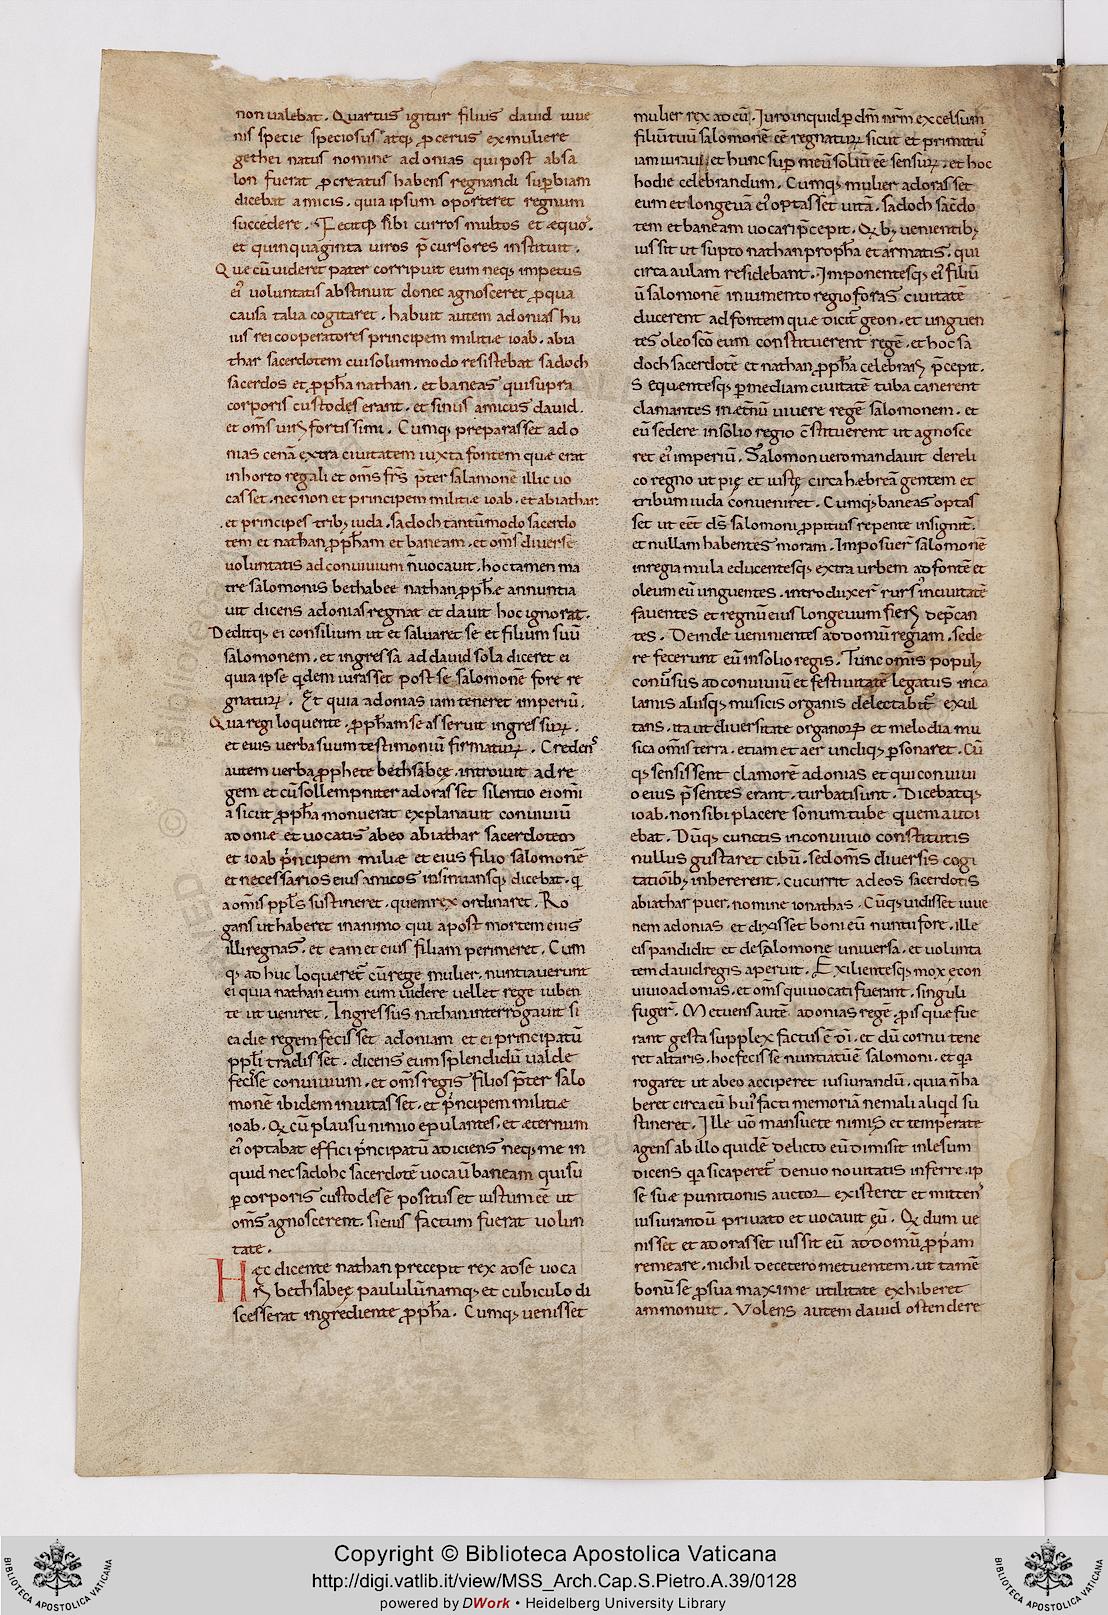 non ualebat. Quartus igitur filius dauid iuue
nis specie speciosus atq; ꝓcerus ex muliere
gethei natus nomine adonias qui post absa
lon fuerat ꝓcreatus habens regnandi suꝑbiam
dicebat amicis. quia ipsum oporteret regnum
succedere. Fecitq; sibi currus multos et equoꝰ.
et quinquaginta uiros p̄cursores instituit.
Que cū uideret pater corripuit eum neq; impetus
eiꝰ uoluntatis abstinuit donec agnosceret ꝓqua
causa talia cogitaret. habuit autem adonias hu
ius rei cooperatores principem militiæ ioab. abia
thar sacerdotem cui solummodo resistebat sadoch
sacerdos et ꝓph̄a nathan. et baneas qui supra
corporis custodes erant. et sinus amicus dauid.
et om̄s uiri fortissimi. Cumq; preparasset ado
nias cenā extra ciuitatem iuxta fontem quæ erat
in horto regali et om̄s fr̄s p̄ter salamonē illic uo
casset. nec non et principem militiæ ioab. et abiathar.
. et principes tribꝫ iuda. sadoch tantūmodo sacerdo
tem et nathan ꝓph̄am et baneam. et om̄s diuerse
uoluntatis ad conuiuium n̄ uocauit. hoc tamen ma
tre salomonis bethabee nathan ꝓph̄e annuntia
uit dicens adonias regnat et dauit hoc ignorat.
Deditq; ei consilium ut et saluaret se et filium suū
salomonem. et ingressa ad dauid sola diceret ei
quia ipse qdem iurasset post se salomonē fore re
gnaturꝝ. Et quia adonias iam teneret imperiū.
Qua regi loquente. ꝓph̄am se asseruit ingressurꝝ.
et eius uerba suum testimoniū firmaturꝝ. Credenꝰ
autem uerba ꝓphete bethsabęe. introiuit ad re
gem et cū sollempniter adorasset silentio ei om̄i
a sicut ꝓph̄a monuerat explanauit conuiuiū
adoniæ et uocatis abeo abiathar sacerdotem
et ioab p̄ncipem miliæ et eius filio salomonē
et necessarios eius amicos insinuansq; dicebat. q̄
a om̄is ppl̄s sustineret. quem rex ordinaret. Ro
gans ut haberet in animo qui a post mortem eius
illi regnas. et eam et eius filiam perimeret. Cum
q; ad huc loqueret᷑ cū rege mulier. nuntiauerunt
ei quia nathan eum eum uidere uellet rege iuben
te ut ueniret. Ingressus nathan interrogauit si
ea die regem fecisset adoniam et ei principatū
ppl̄i tradisset. dicens eum splendidū ualde
fecisse conuiuium. et om̄s regis filios p̄ter salo
monē ibidem inuitasset. et p̄ncipem militiæ
ioab. Qꝫ cū plausu nimio epulantes. et æternum
eiꝰ optabat effici p̄ncipatū adiciens neq; me in
quid nec sadohc sacerdotē uocaū baneam qui su
ꝑ corporis custodes ē positus et iustum eē ut
om̄s agnoscerent. si eius factum fuerat uolun
tate.
Hęc dicente nathan precepit rex ad se uoca
ri bethsabeę paululū namq; et cubiculo di
scesserat ingrediente ꝓph̄a. Cumq; uenisset
mulier rex ad eū. Iuro inquid ꝑ dm̄ nr̄m excelsum
filiū tuū salomonē eē regnaturꝝ sicut et primatuꝰ
iam iuraui. et hunc suꝑ meū soliū eē sensurꝝ. et hoc
hodie celebrandum. Cumq; mulier adorasset
eum et longeuā eiꝰ optasset uitā. sadoch sac̄do
tem et baneam uocari p̄cepit. Qꝫ bꝫ uenientibꝫ
iussit ut supto nathan proph̄a et armatis. qui
circa aulam residebant. Imponentesq; eiꝰ filiū
ū salomonē in iumento regio foras ciuitatē
ducerent ad fontem quæ dicit᷑ geon. et unguen
tes oleo scō eum constituerent regē. et hoc sa
doch sacerdotē et nathan ꝓph̄a celebrari p̄cepit.
Sequentesq; ꝑ mediam ciuitatē tuba canerent
clamantes in et̄nū uiuere regē salomonem. et
eū sedere in solio regio c̄stituerent ut agnosce
ret eiꝰ imperiū. Salomon uero mandauit dereli
co regno ut pię et iustę circa hæbreā gentem et
tribum iuda conueniret. Cumq; baneas optas
set ut eēt ds̄ salomoni ꝓpitius repente insignit᷑.
et nullam habentes moram. Imposuer̄ salomonē
in regia mula educentesq; extra urbem ad fontē et
oleum eū unguentes. introduxer̄ rursꝰ in ciuitatē
fauentes et regnū eius longeuum fieri dep̄can
tes. Deinde ueninientes ad domū regiam. sede
re fecerunt eū in solio regis. Tunc om̄is populꝫ
conūsus ad conuiuiū et festiuitatē legatus in ca
lamis aliisq; musicis organis delectabit᷑ exul
tans. ita ut diuersitate organorꝝ et melodia mu
sica om̄is terra. etiam et aer undiq; ꝑsonaret. Cū
q; sensissent clamorē adonias et qui conuiui
o eius p̄sentes erant. turbati sunt. Dicebatq;
ioab. non sibi placere sonum tube quem audi
ebat. Dūq; cunctis in conuiuio constitutis
nullus gustaret cibū. sed om̄s diuersis cogi
tationibꝫ inhererent. cucurrit ad eos sacerdotis
abiathar puer. nomine ionathas. Cūq; uidisset iuue
nem adonias. et dixisset boni eū nuntii fore. ille
eis pandidit et de salomone uniuersa. et uolunta
tem dauid regis aperuit. Exilientesq; mox ęcon
uiuio adonias. et om̄s qui uocati fuerant. singuli
fuger̄. Metuens autē adonias regē. ꝓ is quæ fue
rant gesta supplex factus ē dī. et dū cornu tene
ret altaris. hoc fecisse nuntiatū ē salomoni. et qa
rogaret ut abeo acciperet iusiurandū. quia n̄ ha
beret circa eū huiꝰ facti memoriā ne mali aliqd su
stineret. Ille uō mansuete nimis et temperate
agens ab illo quidē delicto eū dimisit inlesum
dicens qa si caperet᷑ denuo nouitatis inferre. ip
se suæ punitionis auctor existeret et mittenꝰ
iusiurandū priuato et uocauit ęū. Qꝫ dum ue
nisset et adorasset iussit eū ad domū ꝓpriam
remeare. nichil de cetero metuentem. ut tamē
bonū se ꝓ sua maxime utilitate exhiberet
ammonuit. Volens autem dauid ostendere
Copyright © Biblioteca Apostolica Vaticana
http://digi.vatlib.it/view/MSS_Arch.Cap.S.Pietro.A.39/0128
powered by DWork • Heidelberg University Library